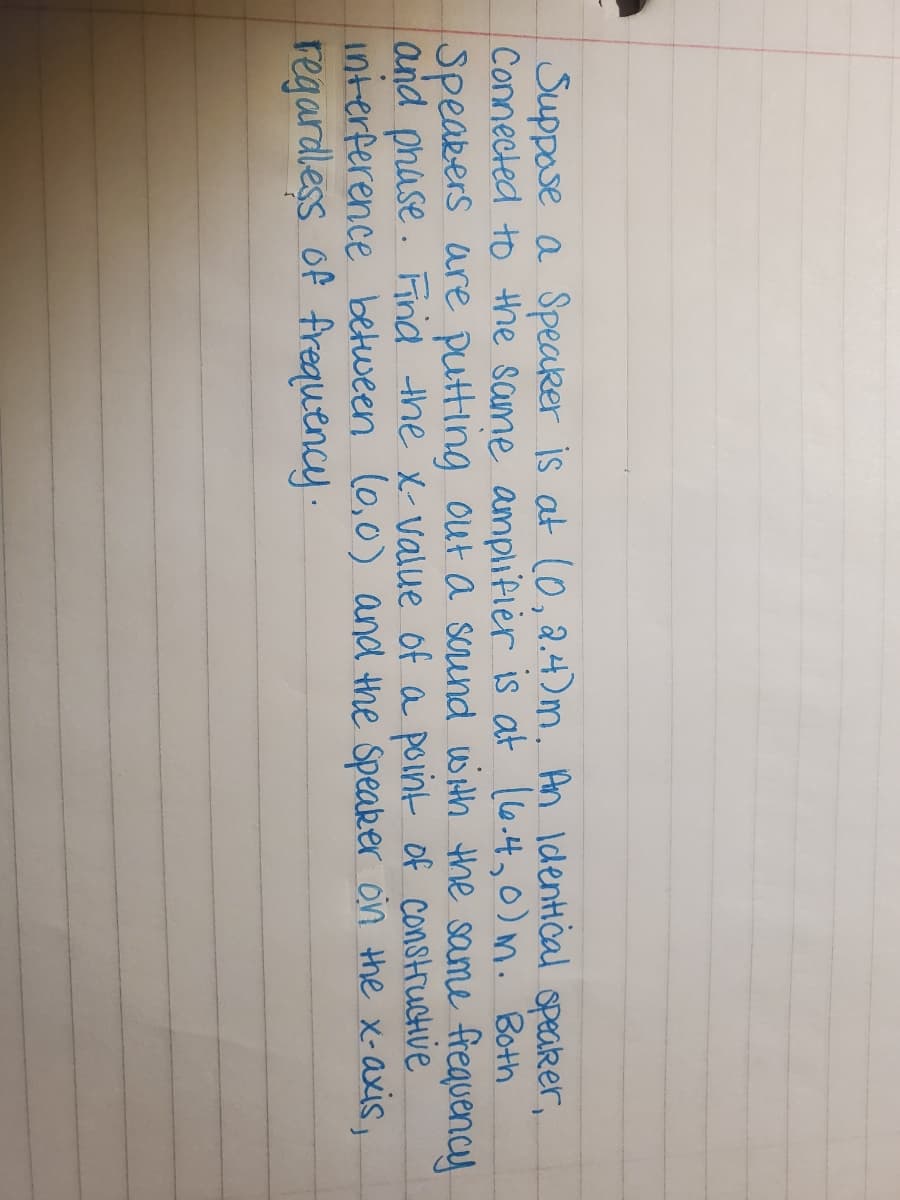 Suppose a speaker is at (0, 2.4)m. An identical speaker,
connected to the same amplifier is at (6.4, 0) m. Both
speakers are putting out a sound with the same frequency
and phase. Find the x-value of a point of constructive
interference between (0,0) and the speaker on the x-axis,
regardless of frequency.